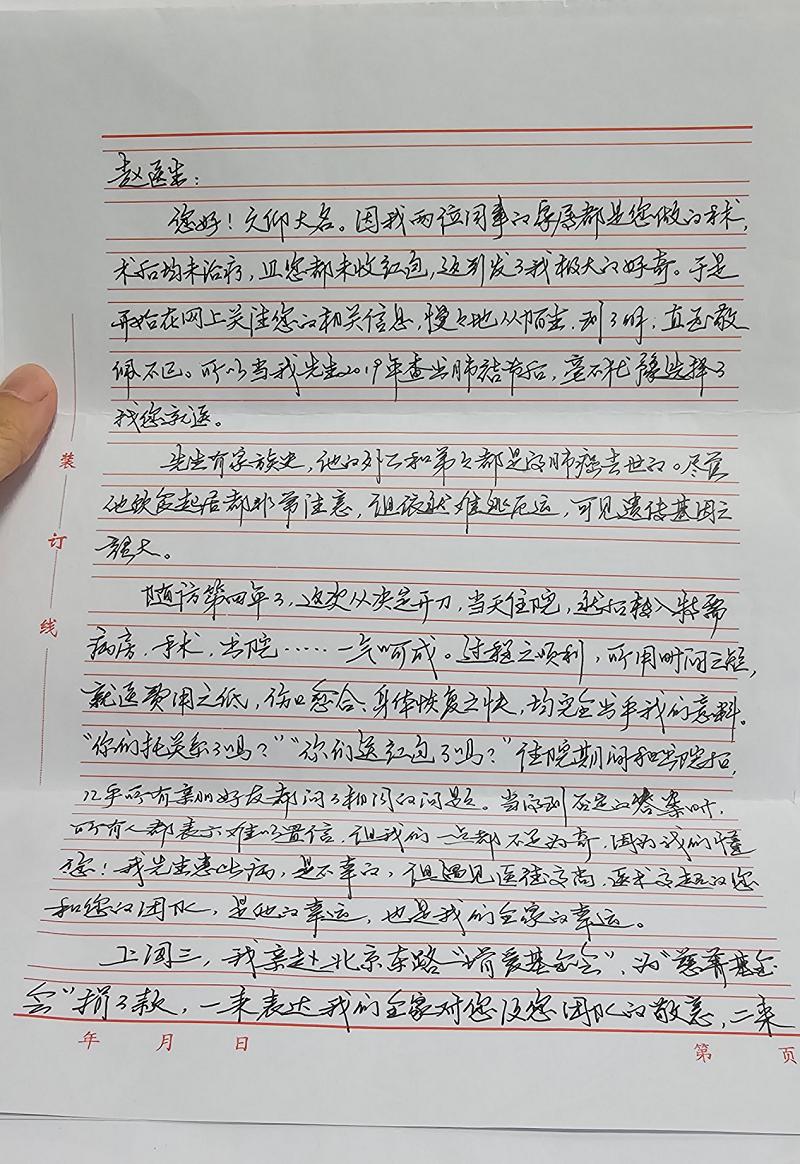 赵医生：
您好！久仰大名。因我两位同事的
都是您做的手术，
术后均未治疗，且您都未收红包，这引发了我极大的好奇。于是
开始在网上关注您的相关信息，慢々地从陌生，到了解，直至敬
佩不已。所以当我先生2019年查出肺结节后，毫不犹豫选择了
找您就医。
先生有家族史，他的外公和弟々都是
肺癌去世的。尽管
他饮食起居都非常注意，但依然难逃厄运，可见遗传基因之
强大。
随访第四年了，这次从决定开刀，当天住院，然后转入特需
病房，手术，出院……一气呵成。过程之顺利，所用时间之短，
就医费用之低，伤口愈合、身体恢复之快，均完全出乎我们意料。
“你们托关系了吗？”“你们送红包了吗？”住院期间和出院后，
几乎所有亲朋好友都问了相同的问题。当得到否定的答案时，
所有人都表示难以置信，但我们一点都不足为奇，因为我们懂
您！我先生患此病，是不幸的，但遇见医德高尚、医术高超的您
和您的团队，是他的幸运，也是我们全家的幸运。
上周三，我亲赴北京东路
爱基金会”，为“慈善基金
会”捐了款，一来表达我们全家对您及您团队的敬意，二来
装
订
线
年 月 日
第 页